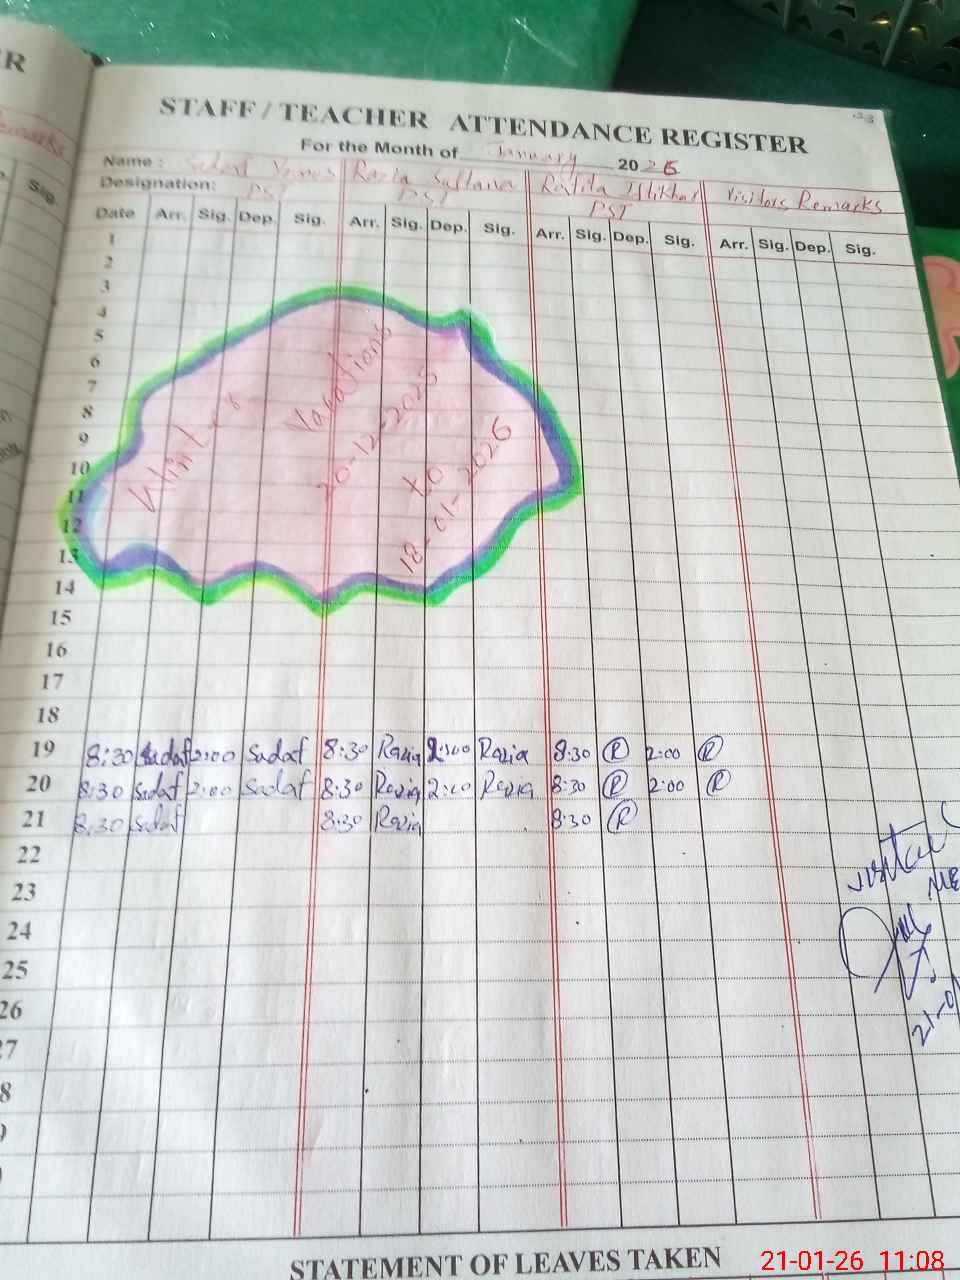 STAFF / TEACHER ATTENDANCE REGISTER
For the Month of January 2026
Name : Sadaf Younus Razia Sultana Rafila Iftikhar Visitors Remarks
Designation: PST PST PST
Date Arr. Sig. Dep. Sig. Arr. Sig. Dep. Sig. Arr. Sig. Dep. Sig. Arr. Sig. Dep. Sig.
1
2
3
4
5
6
7
8
9
10
11
12
13
14
15
16
17
18
Winter Vacations
20-12-2025
to
18-01-2026
19 8:30 Sadaf 2:00 Sadaf 8:30 Razia 2:00 Razia 8:30 R 2:00 R
20 8:30 Sadaf 2:00 Sadaf 8:30 Razia 2:00 Razia 8:30 R 2:00 R
21 8:30 Sadaf 8:30 Razia 8:30 R
22
23
24
25
26
visited
21-0
STATEMENT OF LEAVES TAKEN
21-01-26 11:08
Remarks
Sig.